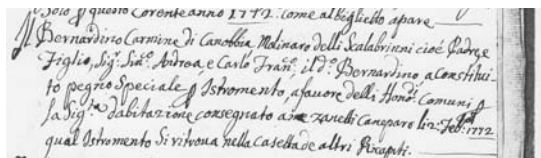 Solo p questo Corente anno 1772. come al biglietto apare
Il Bernardino Carmine di Canobbia Molinaro delli Scalabrinni cioé Padre, e
Figlio, Sig.r Sin.co Andrea, e Carlo Fran.co, il d.o Bernardino a Constitui-
to pegno Speciale p Istromento, a favore delli Hond.i Comuni p
la Sig.ta d'abitazione consegnato a me Zanelli Caneparo li 2: Feb.o 1772
qual Istromento Si ritrova nella Casella de altri Ricapiti.